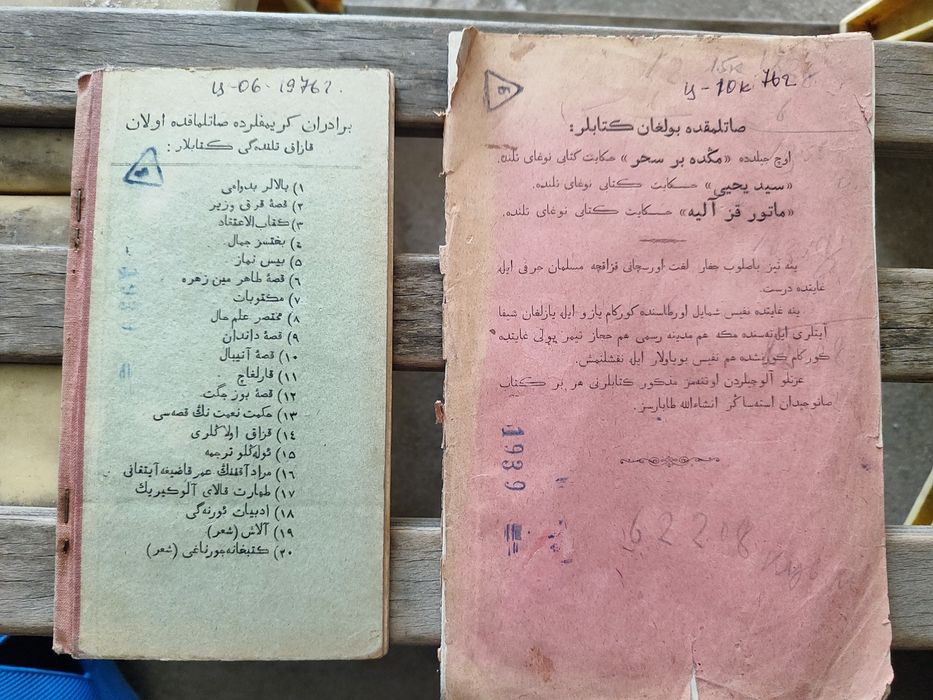 ц-06-1976г.
برادران کریمفلرده صاتلماقده اولان
قازاق تلنده‌گی کتابلار :
۱) بالالر بدوامی
۲) قصهٔ قرق وزیر
۳) کتاب الاعتقاد
۴) بختسز جمال
۵) بیس نماز
۶) قصهٔ طاهر مین زهره
۷) مکتوبات
۸) مختصر علم حال
۹) قصهٔ داندان
۱۰) قصهٔ آنیبال
۱۱) قارلغاچ
۱۲) قصهٔ بوز جگت
۱۳) حکمت نعمت نڭ قصه‌سی
۱۴) قزاق اولاڭلری
۱۵) ئوله‌ڭلو ترجمه
۱۶) مراد آقننڭ عمر قاضیغه آیتقانی
۱۷) طهارت قالای آلو کیریك
۱۸) ادبیات ئورنه‌گی
۱۹) آلاش (شعر)
۲۰) کتبخانه جورناغی (شعر)
ц-10к 76г
صاتلمقده بولغان کتابلر:
اوچ جیلدده «مڭده بر سحر» حکایت کتابی نوغای تلنده.
«سید یحیی» حکایت کتابی نوغای تلنده.
«ماتور قز آلیه» حکایت کتابی نوغای تلنده.
ینه تیز باصلوب چغار لغت اورسچانی قزاقچه مسلمان حرفی ایله
غایتده درست.
ینه غایتده نفیس شمایل اورطاسنده کورکام یازو ایله یازلغان شفا
آیتلری ایله تمسنده مکه هم مدینه رسمی هم حجاز تیمر یولی غایتده
کورکام کوریشده هم نفیس بویاولار ایله نقشلنمش.
عزتلو آلوچیلردن اوتنه‌مز مذکور کتابلرنی هر بر کتاب
صاتوچیدان استه‌ساڭز انشاءالله طابارسز.
1939
6 2 2 8